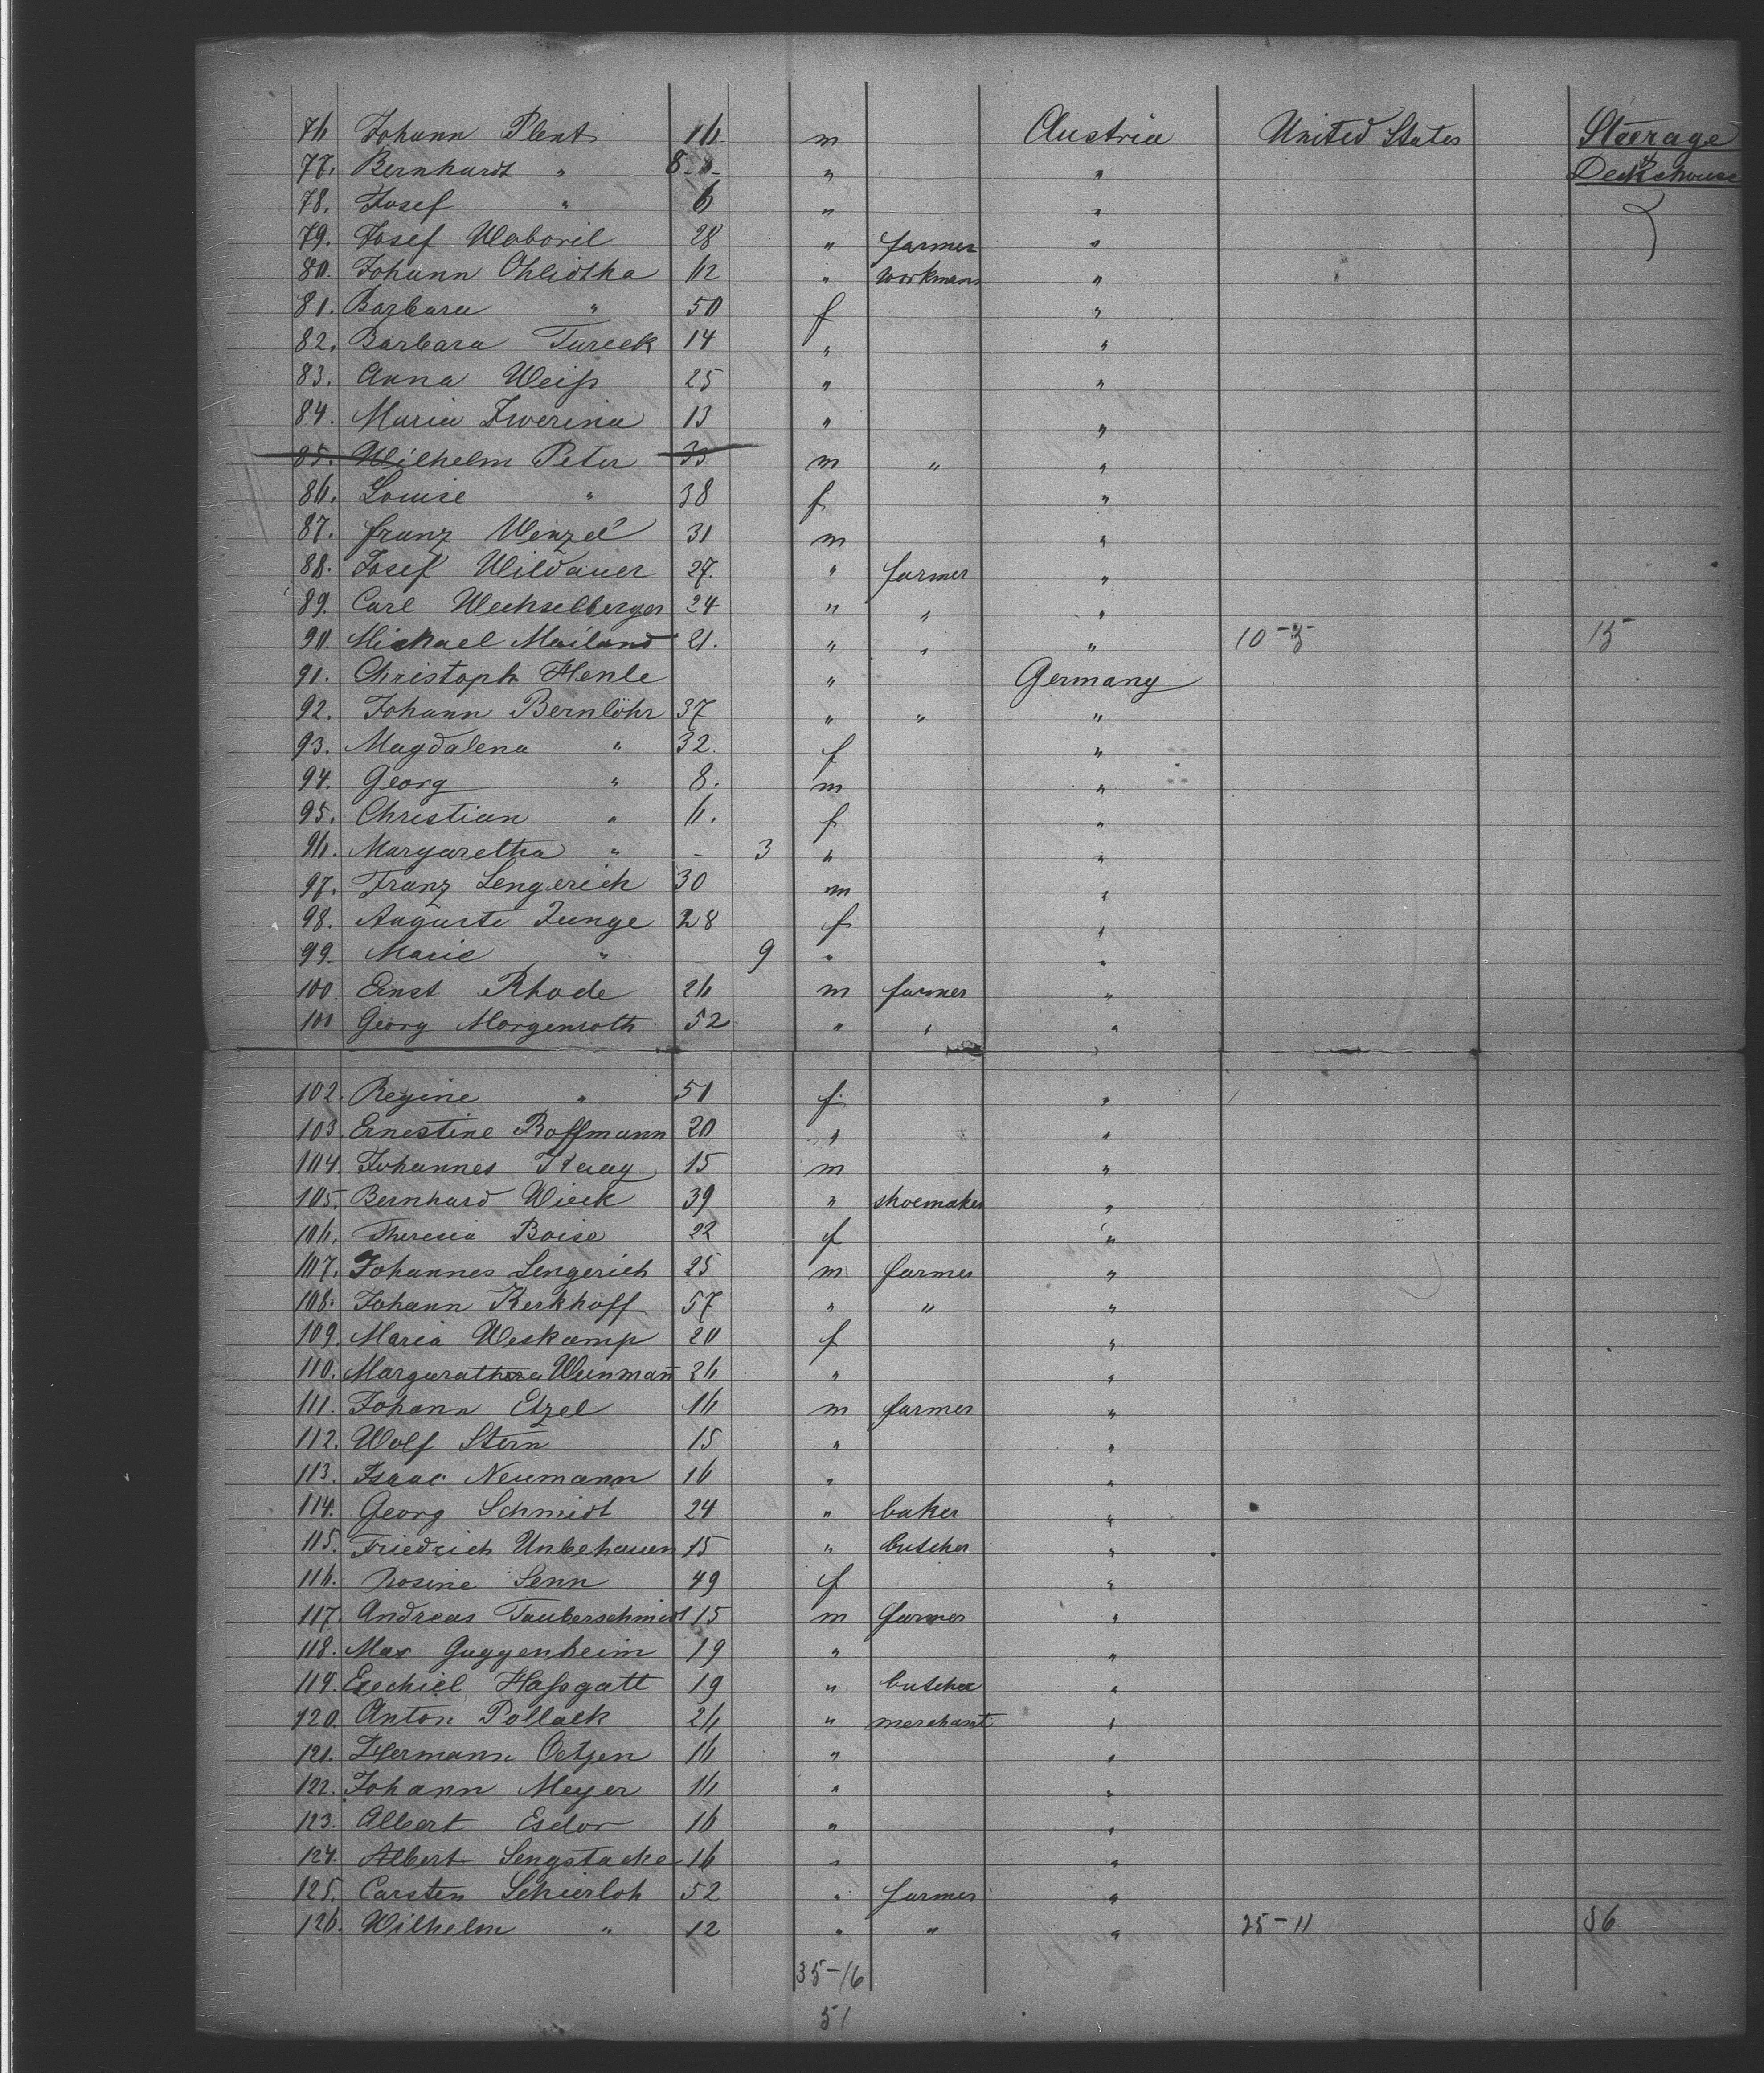 76 Johann Plent 16 m Austria United States Steerage
77. Bernhardt " 8 " " Deckshouse
78. Josef " 6 " "
79. Josef Woboril 28 " farmer "
80. Johann Chlidtka 62 " workman "
81. Barbara " 50 f "
82. Barbara Tureek 14 " "
83. Anna Weiß 25 " "
84. Maria Zwerina 13 " "
85. Wilhelm Peter 33 m " "
86. Louise " 38 f "
87. Franz Wenzel 31 m "
88. Josef Wildauer 27. " farmer "
89. Carl Wechselberger 24 " " "
90. Michael Mailand 21. " " " 10-5 15
91. Christoph Henle " Germany
92. Johann Bernlöhr 37 " " "
93. Magdalena " 32. f "
94. Georg " 8. m "
95. Christian " 6. f "
96. Margaretha " - 3 " "
97. Franz Lengerich 30 m "
98. Auguste Junge 28 f "
99. Marie " - 9 " "
100 Ernst Rhode 26 m farmer "
101 Georg Morgenroth 52 " " "
102. Regine " 51 f "
103. Ernestine Roffmann 20 " "
104. Johannes 15 m "
105. Bernhard Wieck 39 " shoemaker "
106. Theresia Boise 22 f "
107. Johannes Lengerich 25 m farmer "
108. Johann Kerkhoff 57 " " "
109. Maria Weskamp 20 f "
110. Weinman̄ 26 " "
111. Johann Etzel 16 m farmer "
112. Wolf Stern 15 " "
113. Isaac Neumann 16 " "
114. Georg Schmidt 24 " baker "
115. Friedrich Unbehauen 15 " butcher "
116. Rosine Senn 49 f "
117. Andreas Tauberschmidt 15 m farmer "
118. Max Guggenheim 19 " "
119. Ezechiel Haßgatt 19 " butcher "
120. Anton Pollack 26 " merchant "
121. Hermann Oetjen 16 " "
122. Johann Meyer 16 " "
123. Albert Esdor 16 " "
124. Albert Sengstacke 16 " "
125. Carsten Schierloh 52 " farmer "
126. Wilhelm " 12 " " " 25-11 36
35-16
51